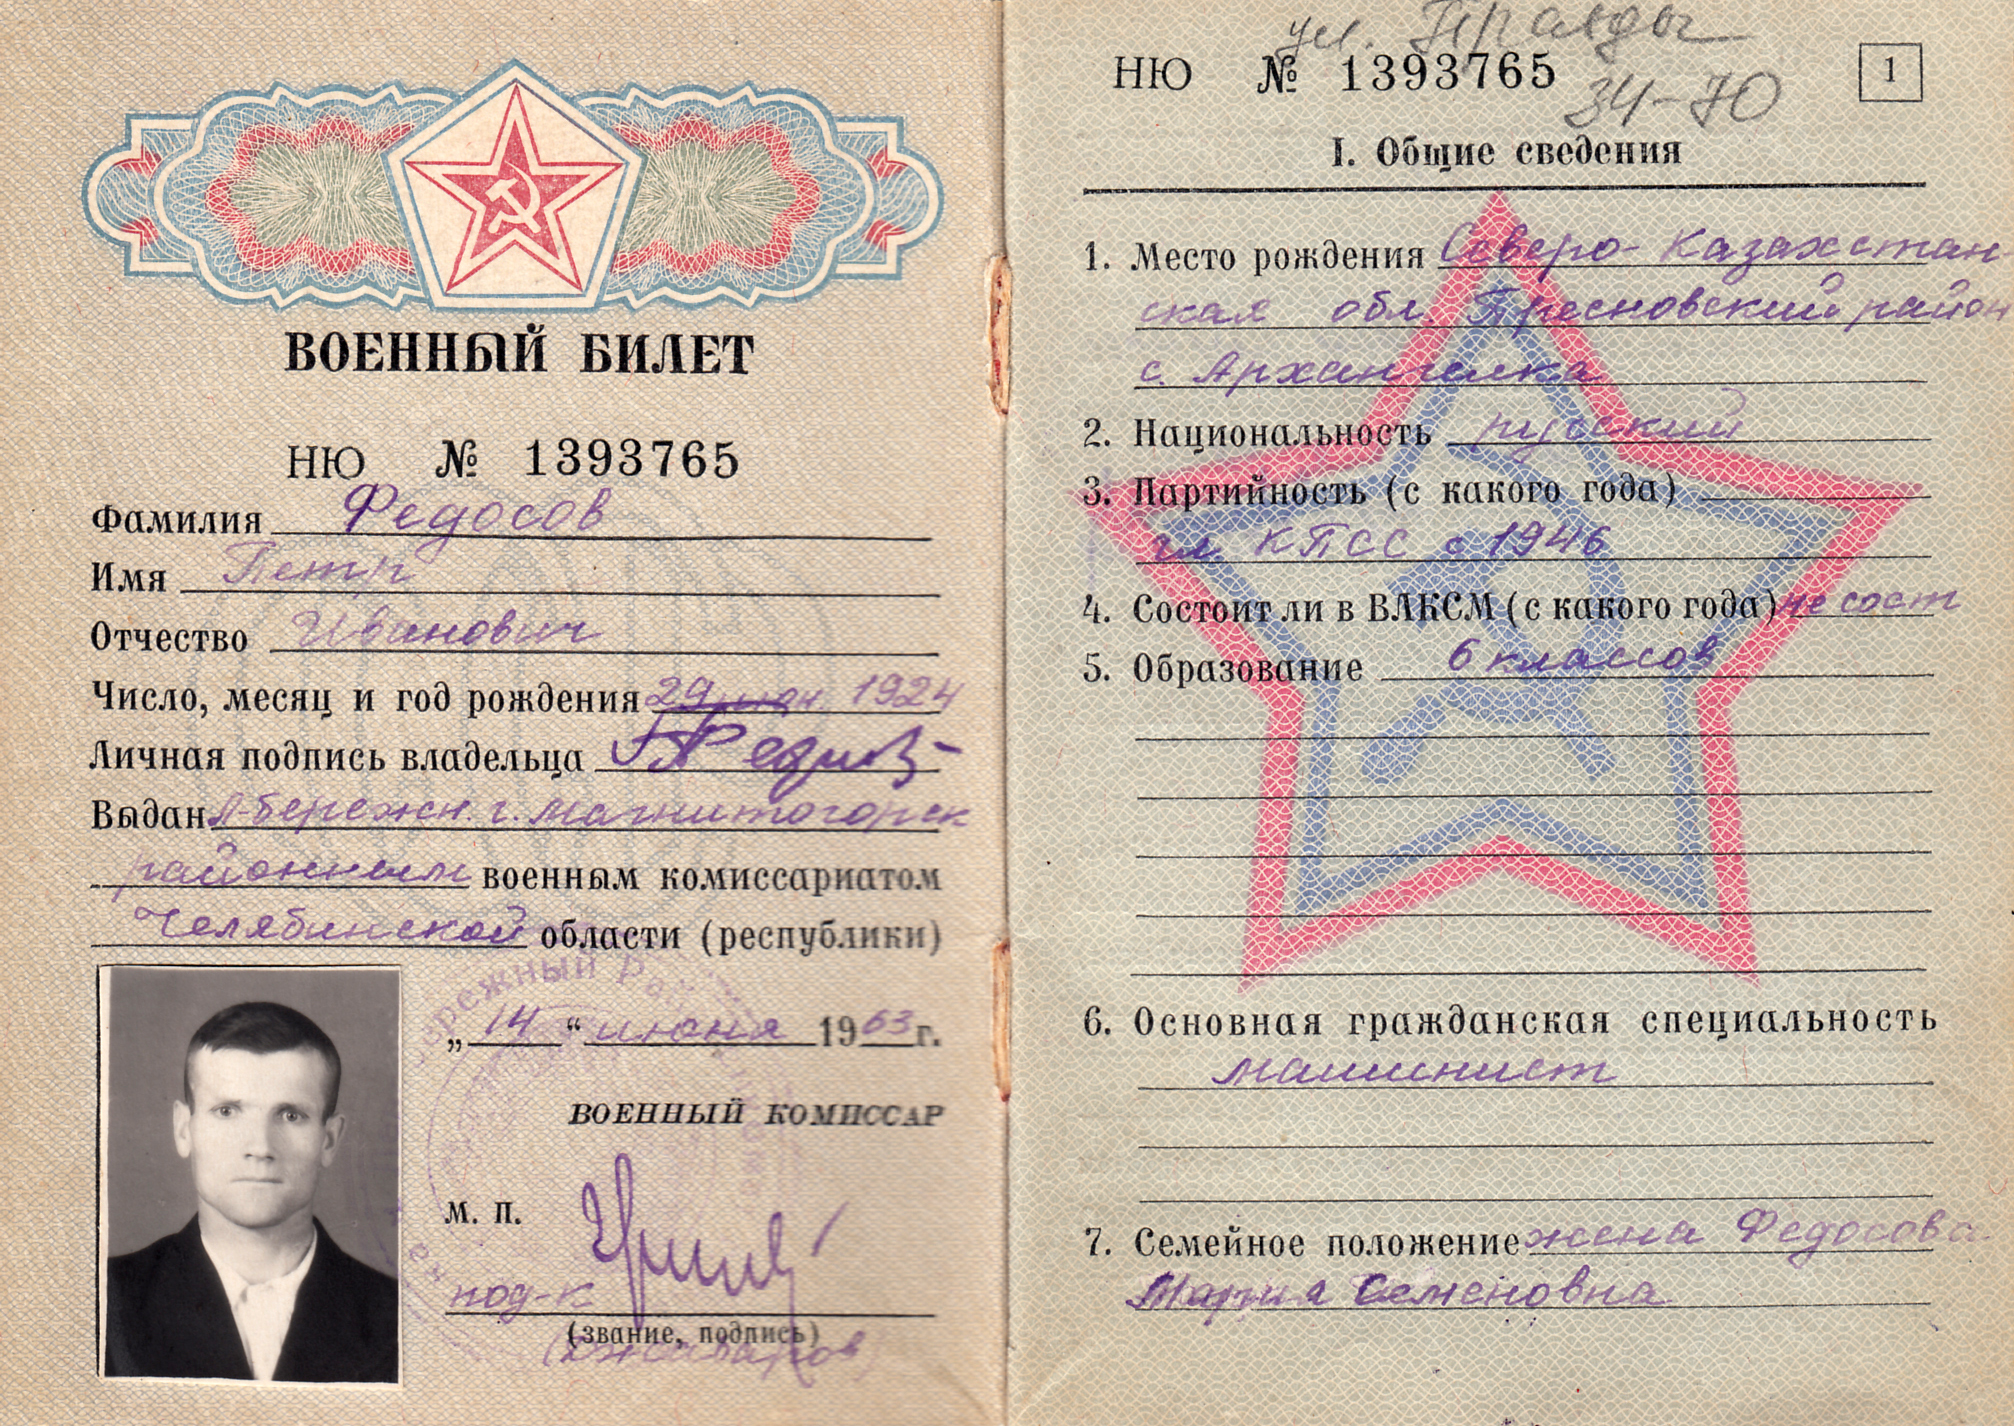 ВОЕННЫЙ БИЛЕТ
НЮ № 1393765
Фамилия Федосов
Имя Петр
Отчество Иванович
Число, месяц и год рождения 29 июн 1924
Личная подпись владельца
Выдан Л-бережн. г. Магнитогорск
районным военным комиссариатом
Челябинской области (республики)
„14“ июня 1963 г.
ВОЕННЫЙ КОМИССАР
М. П.
под-к
(звание, подпись)
ул. Правды
НЮ № 1393765
34-70
1
I. Общие сведения
1. Место рождения Северо-Казахстан-
ская обл Пресновский район
с. Архангелка
2. Национальность русский
3. Партийность (с какого года)
чл. КПСС с 1946
4. Состоит ли в ВЛКСМ (с какого года) не сост
5. Образование 6 классов
6. Основная гражданская специальность
машинист
7. Семейное положение жена Федосова
Мария Семеновна